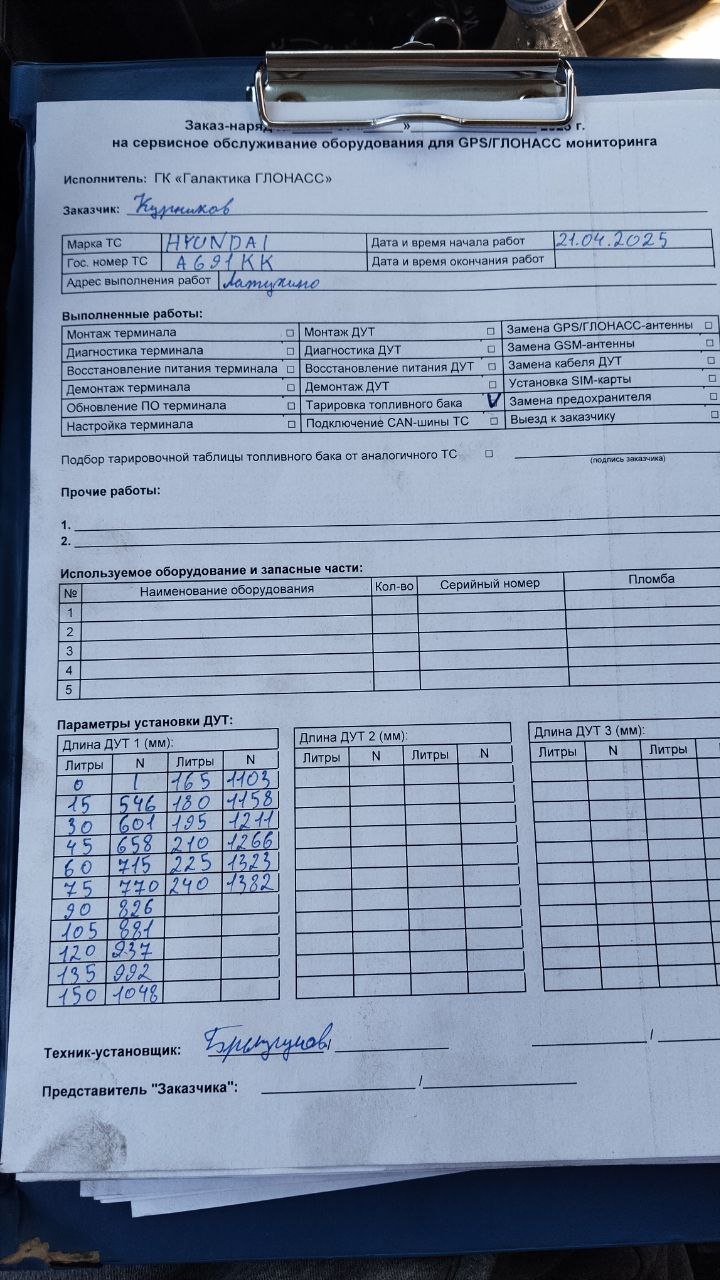 Заказ-наряд » г.
на сервисное обслуживание оборудования для GPS/ГЛОНАСС мониторинга
Исполнитель: ГК «Галактика ГЛОНАСС»
Заказчик: Курников
Марка ТС HYUNDAI Дата и время начала работ 21.04.2025
Гос. номер ТС А691КК Дата и время окончания работ
Адрес выполнения работ Латухино
Выполненные работы:
Монтаж терминала □ Монтаж ДУТ □ Замена GPS/ГЛОНАСС-антенны □
Диагностика терминала □ Диагностика ДУТ □ Замена GSM-антенны □
Восстановление питания терминала □ Восстановление питания ДУТ □ Замена кабеля ДУТ □
Демонтаж терминала □ Демонтаж ДУТ □ Установка SIM-карты □
Обновление ПО терминала □ Тарировка топливного бака V Замена предохранителя □
Настройка терминала □ Подключение CAN-шины ТС □ Выезд к заказчику □
Подбор тарировочной таблицы топливного бака от аналогичного ТС □
(подпись заказчика)
Прочие работы:
1.
2.
Используемое оборудование и запасные части:
№ Наименование оборудования Кол-во Серийный номер Пломба
1
2
3
4
5
Параметры установки ДУТ:
Длина ДУТ 1 (мм): Длина ДУТ 2 (мм): Длина ДУТ 3 (мм):
Литры N Литры N Литры N Литры N Литры N Литры
0 1 165 1103
15 546 180 1158
30 601 195 1211
45 658 210 1266
60 715 225 1323
75 770 240 1382
90 826
105 881
120 937
135 992
150 1048
Техник-установщик: / /
Представитель "Заказчика": /